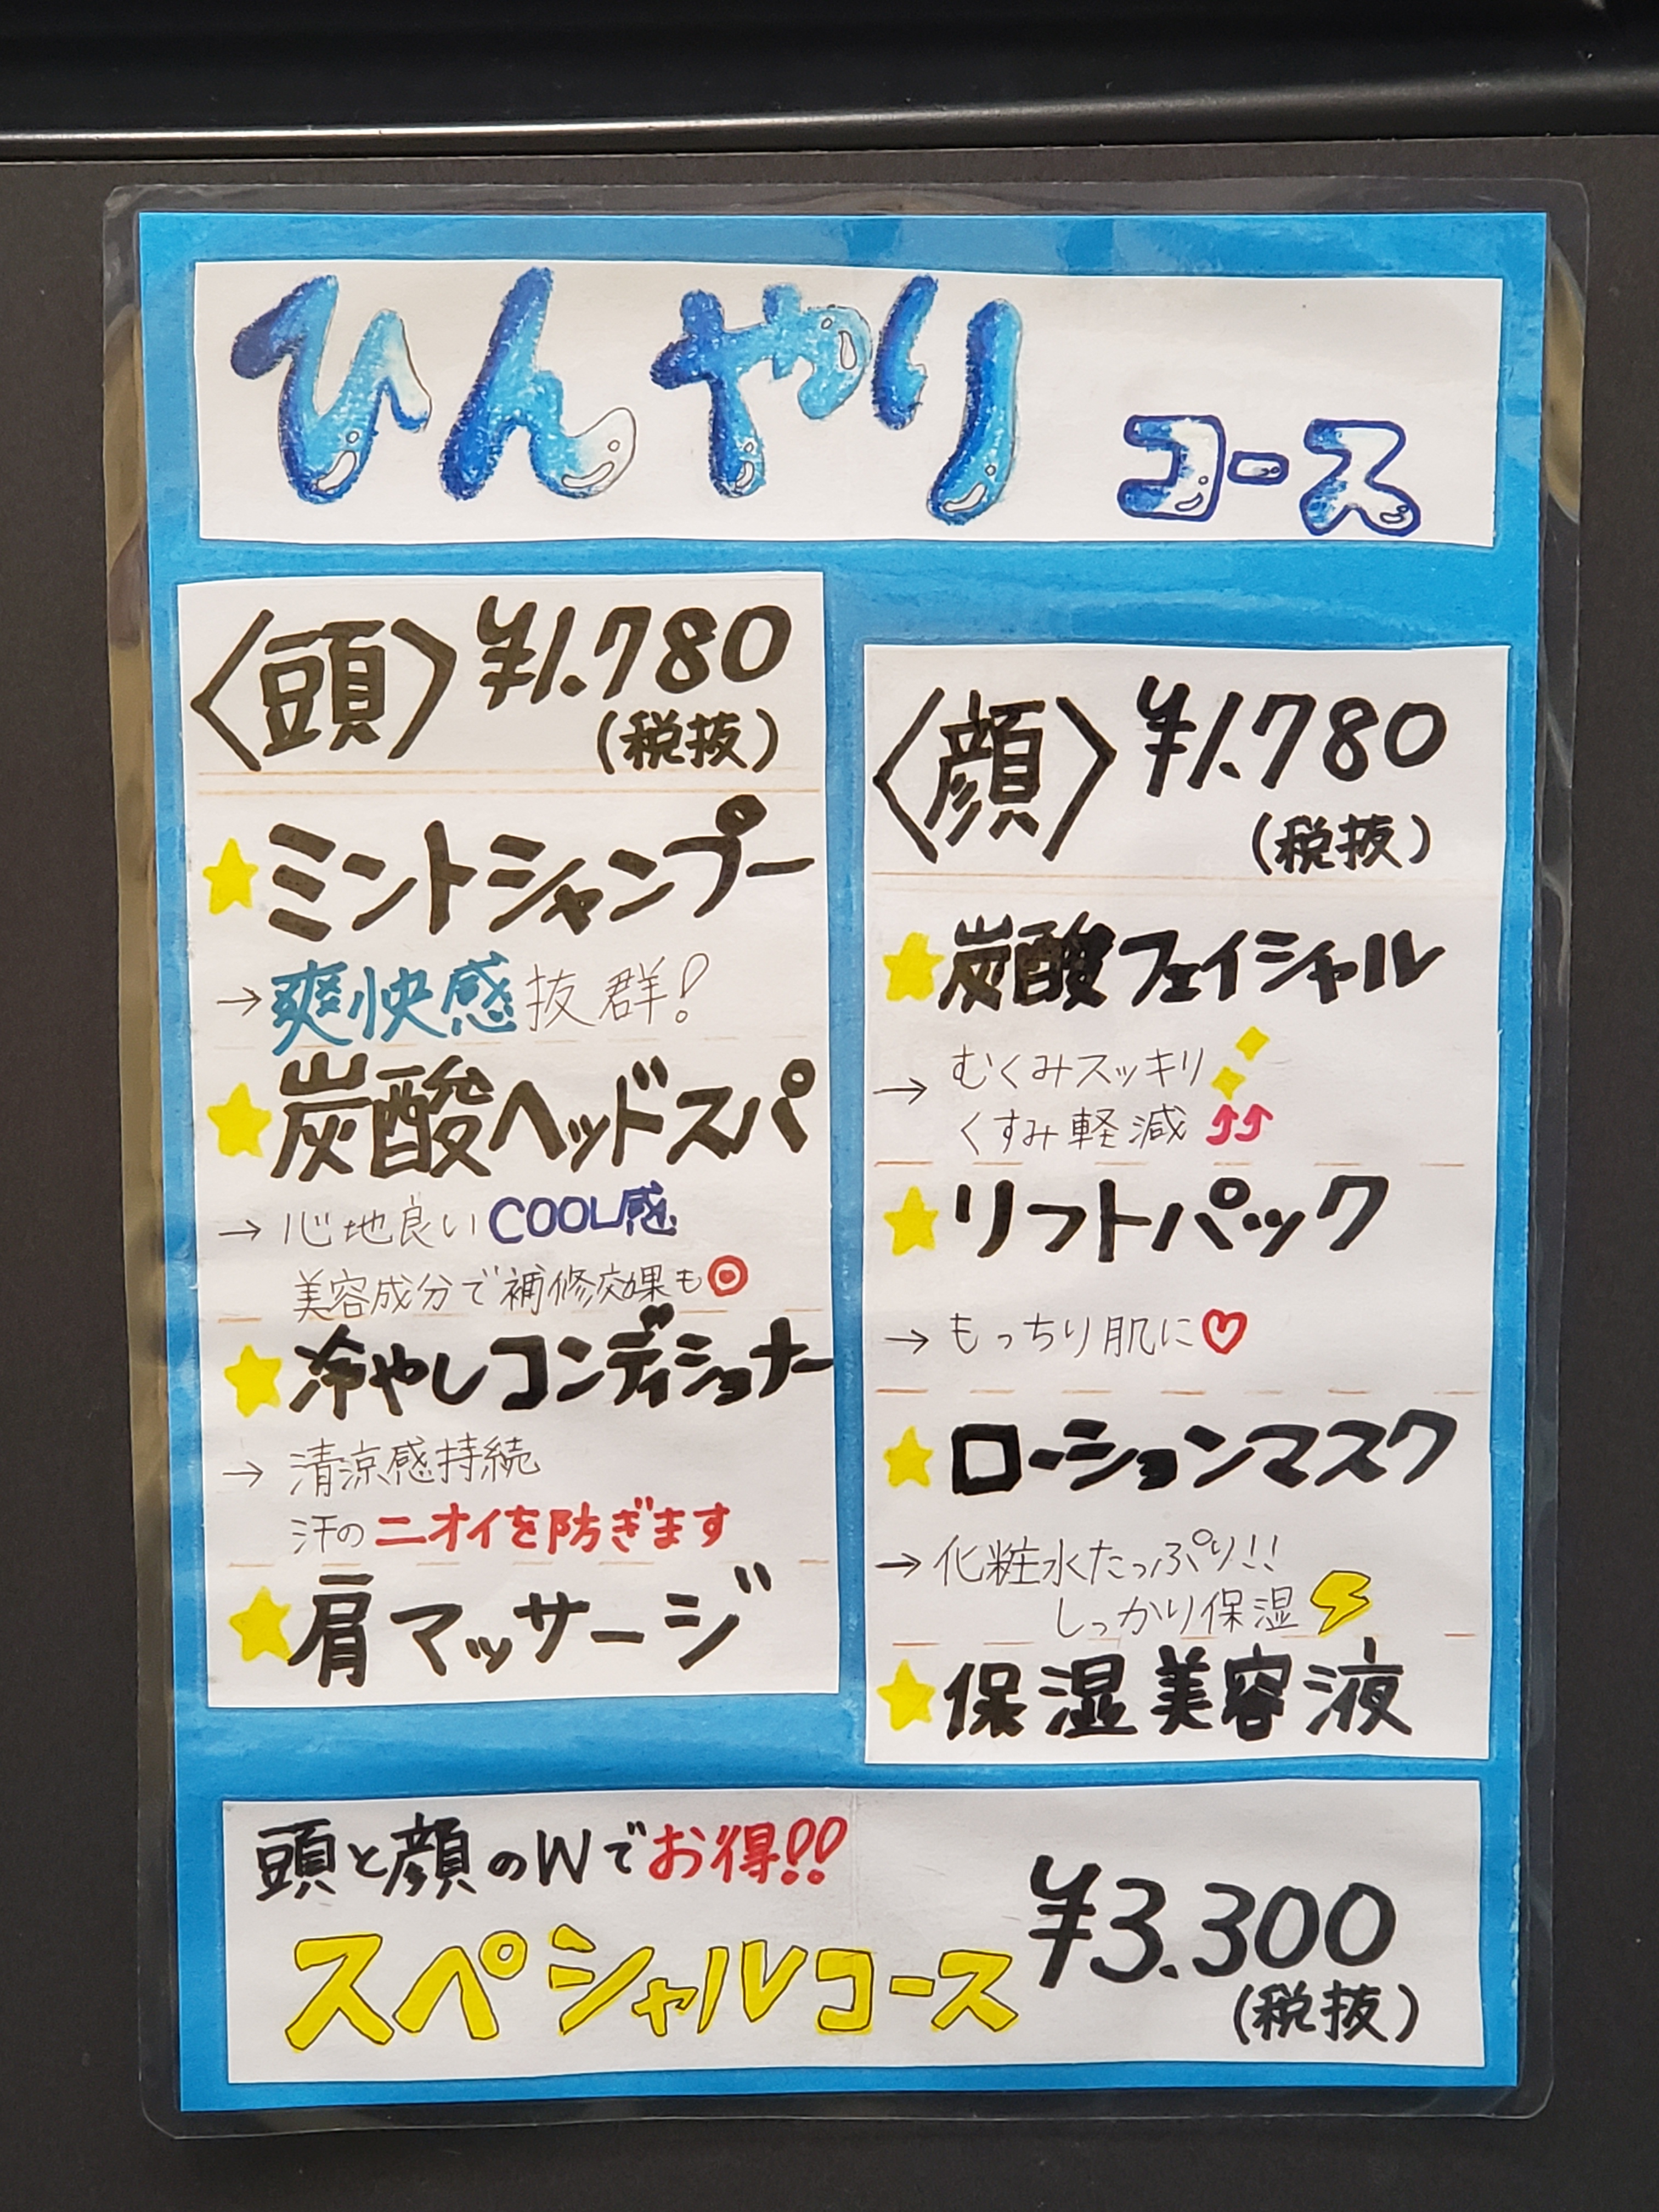 ひんやりコース
〈頭〉¥1.780
(税抜)
ミントシャンプー
→爽快感抜群!
炭酸ヘッドスパ
→心地良いCOOL感
美容成分で補修効果も◎
冷やしコンディショナー
→清涼感持続
汗のニオイを防ぎます
肩マッサージ
〈顔〉¥1.780
(税抜)
炭酸フェイシャル
→むくみスッキリ
くすみ軽減
リフトパック
→もっちり肌に♡
ローションマスク
→化粧水たっぷり!!
しっかり保湿
保湿美容液
頭と顔のWでお得!!
スペシャルコース ¥3.300
(税抜)